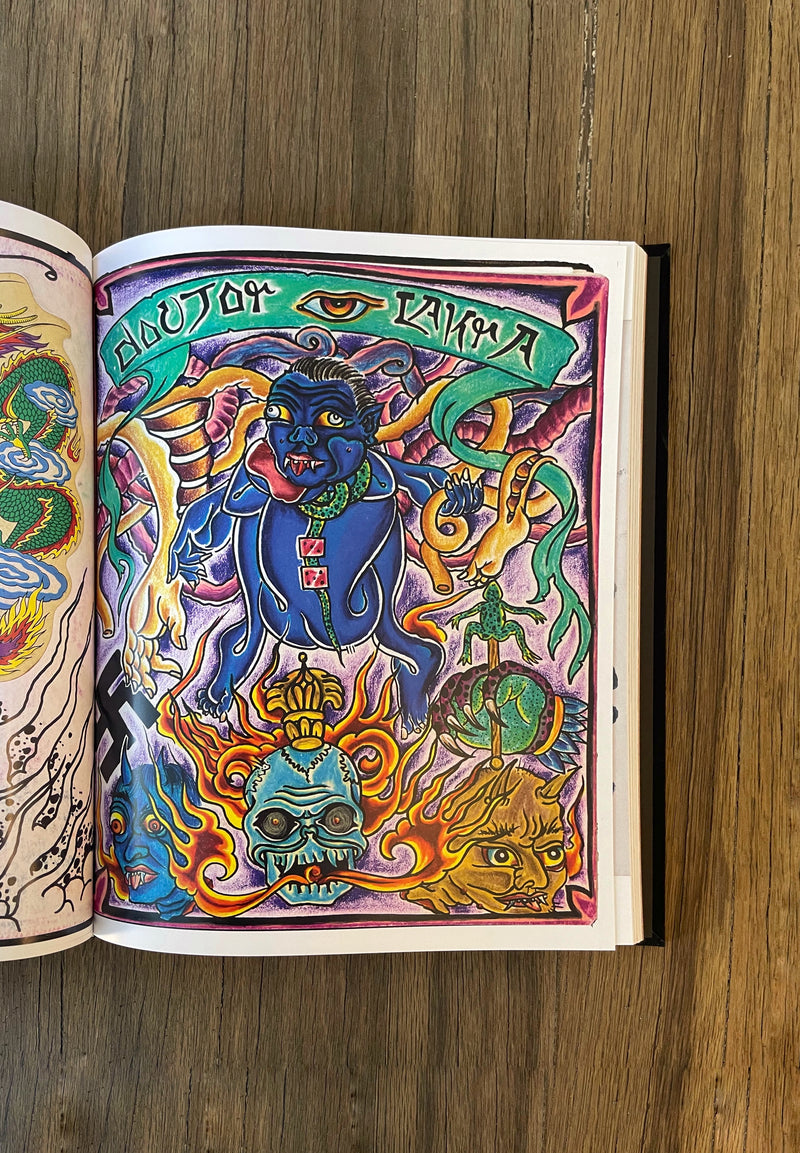 doctor LAKrA